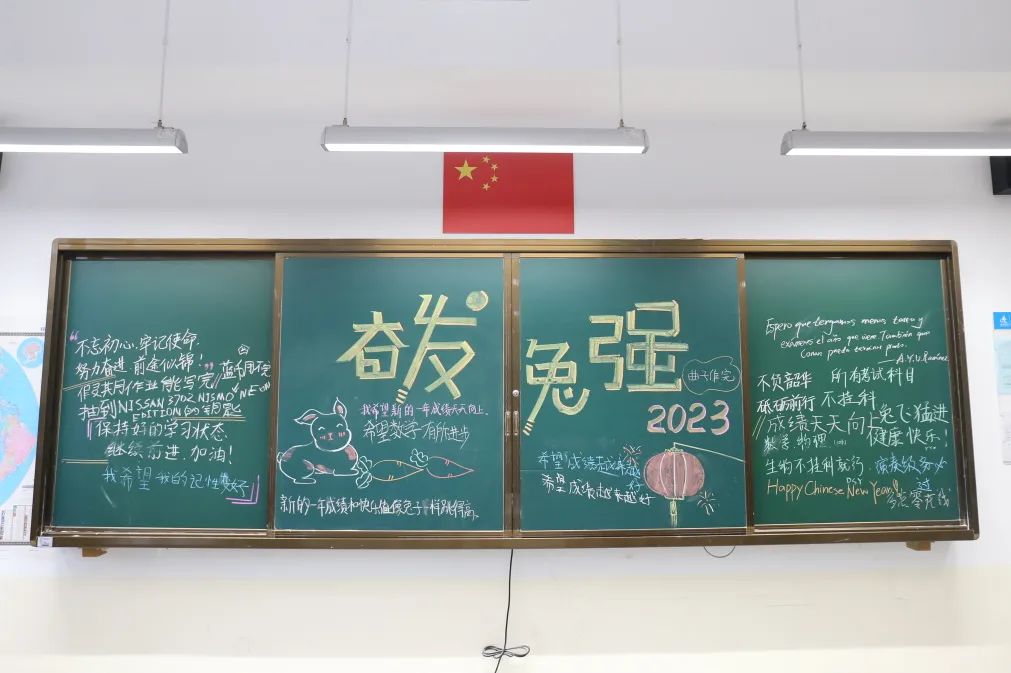 不忘初心.牢记使命.
努力奋进 前途似锦！
作业 能写完
抽到NISSAN 370Z NISMO NEON
EDITION的钥匙
保持好的学习状态
继续前进.加油！
我希望 我的记性变好
奋发
我希望新的一年成绩天天向上.
希望数学有所进步
新的一年成绩和快乐值像兔子一样跳得高.
兔强
2023
希望成绩越来越好
希望成绩越来越好
Espero que tengamos menos tarea y
exámenes el año que viene. También que
Conan pueda terminar pronto.
不负韶华
砥砺前行
所有考试科目
不挂科
成绩天天向上
兔飞猛进
数学 物理
健康快乐！
生物不挂科就行.
Happy Chinese New Year!!